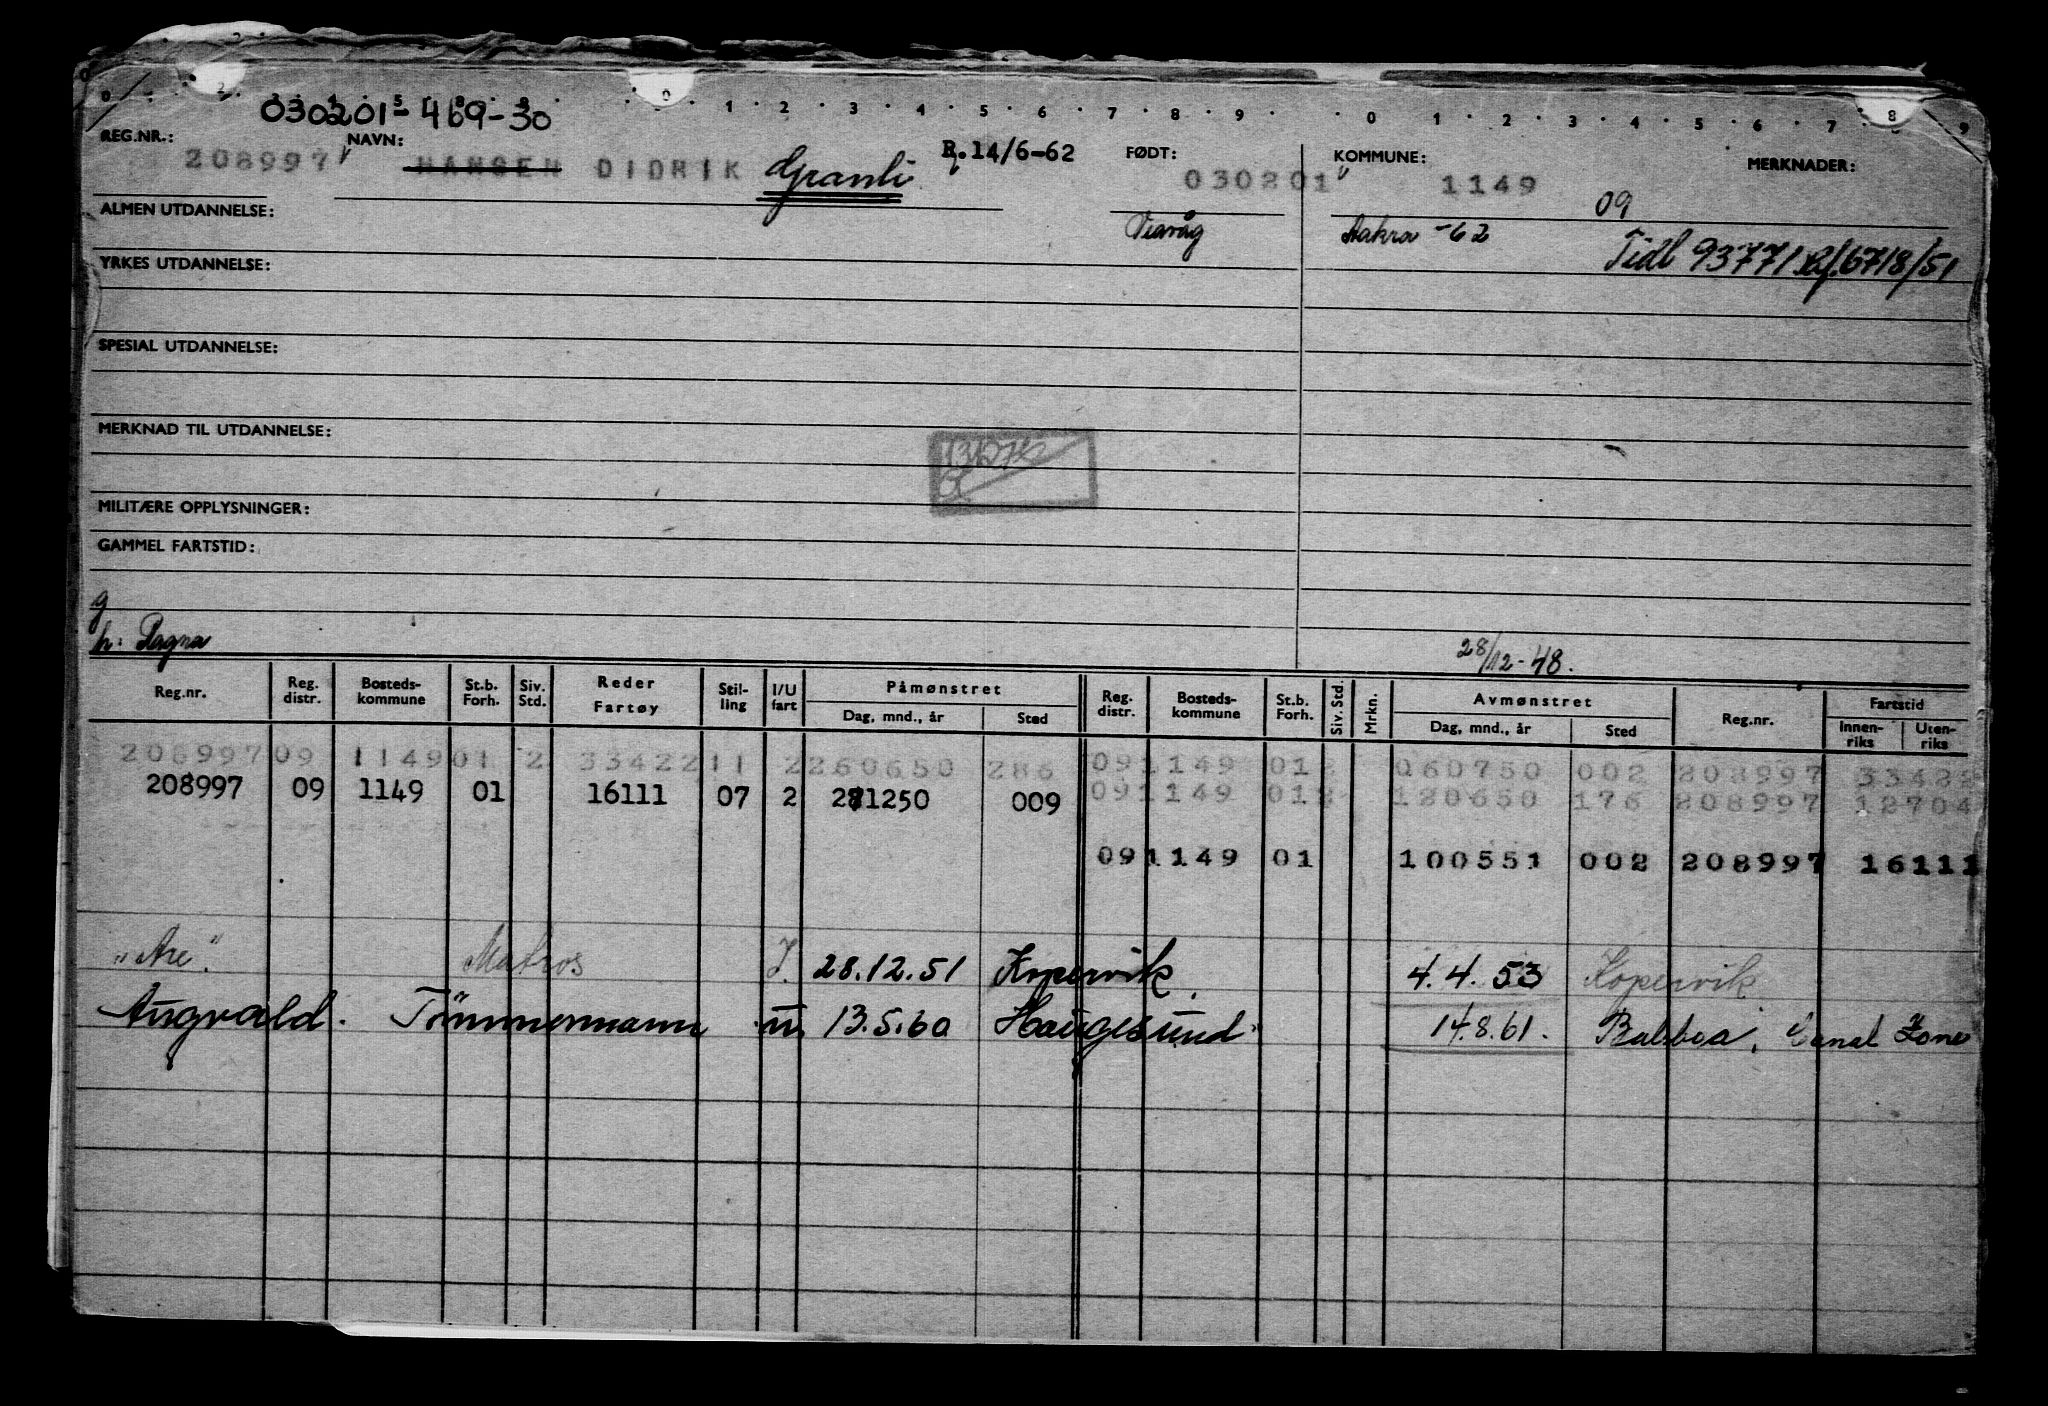 030201-469-30
REG.NR.: NAVN: R.14/6-62 FØDT: KOMMUNE: MERKNADER:
208997 HANSEN DIDRIK Granli 030201 1149 09
ALMEN UTDANNELSE: Veavåg Aakra -62
YRKES UTDANNELSE: Tidl 93771
SPESIAL UTDANNELSE:
MERKNAD TIL UTDANNELSE:
MILITÆRE OPPLYSNINGER:
GAMMEL FARTSTID:
g
h: Ragna 28/12-48.
Reg.nr. Reg. distr. Bosteds-kommune St.b. Forh. Siv. Std. Reder Fartøy Stil-ling I/U fart Påmønstret Reg. distr. Bosteds-kommune St.b. Forh. Siv. Std. Mrkn. Avmønstret Reg.nr. Fartstid
Dag, mnd., år Sted Dag, mnd., år Sted Innen-riks Uten-riks
208997 09 1149 01 2 33422 11 2 260650 286 09 1149 01 2 060750 002 208997 33422
208997 09 1149 01 16111 07 2 281250 009 09 1149 01 2 120650 176 208997 12704
09 1149 01 100551 002 208997 16111
"Are". Matros I. 28.12.51 Kopervik. 4.4.53 Kopervik
Augvald. Tömmermann u. 13.5.60 Haugesund 14.8.61. Balboa, Canal Zone